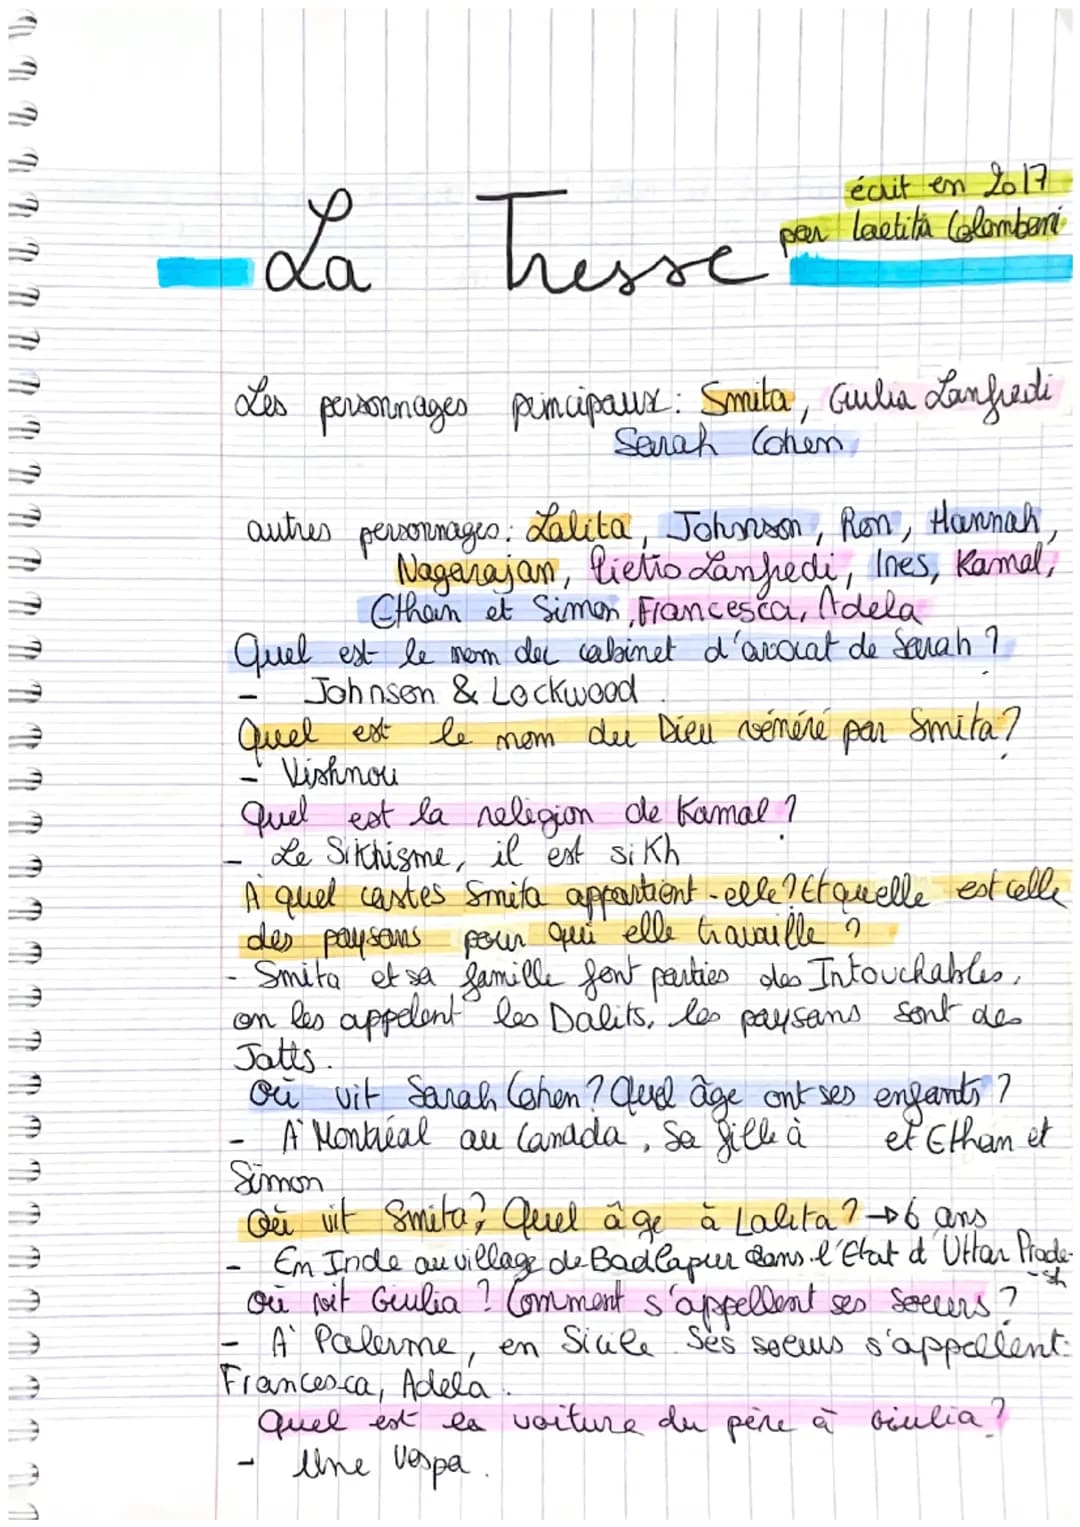 écrit en 2017
par Laetitia Colombani
La Tresse
Les personnages principaux : Smita, Giulia Lanfredi
Sarah Cohen
autres personnages : Lalita, Johnson, Ron, Hannah,
Nagarajan, Pietro Lanfredi, Ines, Kamal,
Ethan et Simon, Francesca, Adela
Quel est le nom du cabinet d'avocat de Sarah ?
- Johnson & Lockwood.
Quel est le nom du Dieu vénéré par Smita ?
- Vishnou
Quel est la religion de Kamal ?
- Le Sikhisme, il est sikh
À quel castes Smita appartient-elle ? Et quelle est celle
des paysans pour qui elle travaille ?
- Smita et sa famille font parties des Intouchables,
on les appelent les Dalits, les paysans sont des
Jatts.
Où vit Sarah Cohen ? Quel âge ont ses enfants ?
- À Montréal au Canada. Sa fille à et Ethan et
Simon
Où vit Smita ? Quel âge à Lalita ? → 6 ans
- En Inde au village de Badlapur dans l'État d'Uttar Prade-
sh
Où vit Giulia ? Comment s'appellent ses soeurs ?
- À Palerme, en Sicile. Ses soeurs s'appellent :
Francesca, Adela.
Quel est la voiture du père à Giulia ?
- Une Vespa.